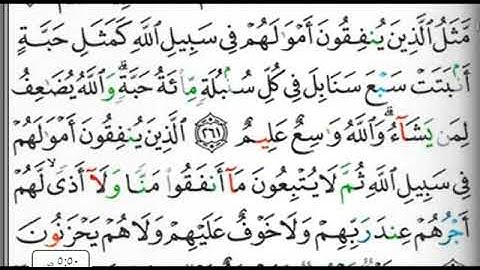 مَّثَلُ ٱلَّذِينَ يُنفِقُونَ أَمۡوَٰلَهُمۡ فِي سَبِيلِ ٱللَّهِ كَمَثَلِ حَبَّةٍ
أَنۢبَتَتۡ سَبۡعَ سَنَابِلَ فِي كُلِّ سُنۢبُلَةٖ مِّاْئَةُ حَبَّةٖۗ وَٱللَّهُ يُضَٰعِفُ
لِمَن يَشَآءُۗ وَٱللَّهُ وَٰسِعٌ عَلِيمٌ ٢٦١ ٱلَّذِينَ يُنفِقُونَ أَمۡوَٰلَهُمۡ
فِي سَبِيلِ ٱللَّهِ ثُمَّ لَا يُتۡبِعُونَ مَآ أَنفَقُواْ مَنّٗا وَلَآ أَذٗى لَّهُمۡ
أَجۡرُهُمۡ عِندَ رَبِّهِمۡ وَلَا خَوۡفٌ عَلَيۡهِمۡ وَلَا هُمۡ يَحۡزَنُونَ
٥:٥٠ ص